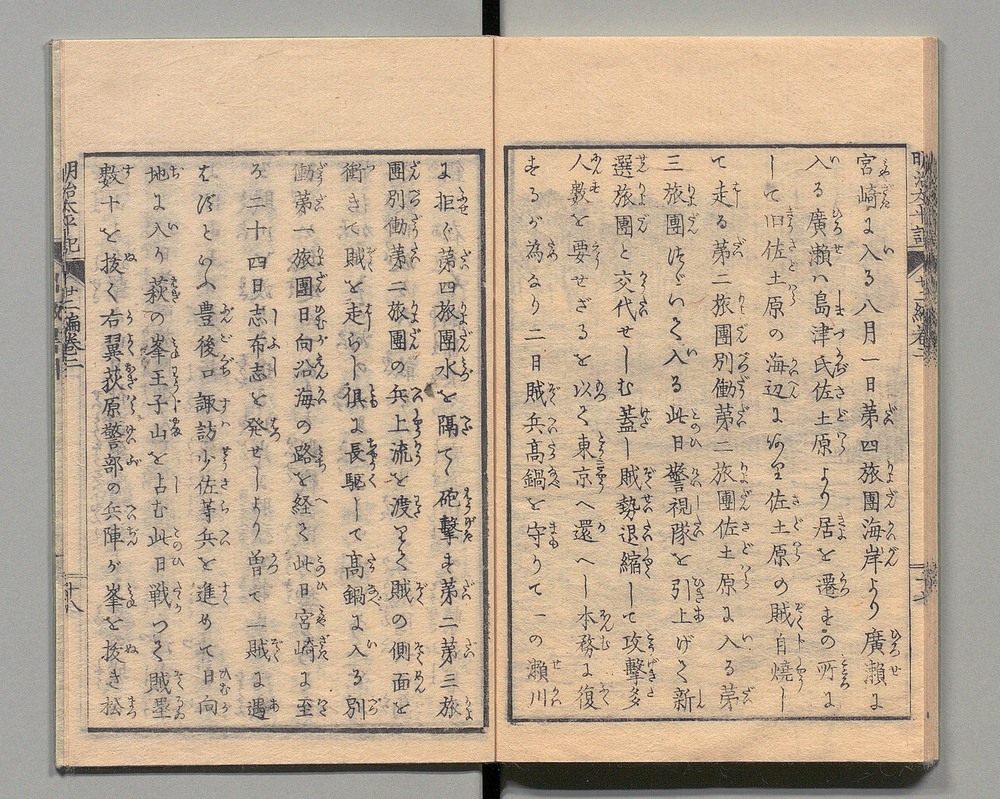 宮崎に入る八月一日第四旅團海岸より廣瀬に
入る廣瀬ハ島津氏佐土原より居を遷すの所に
して旧佐土原の海辺に在り佐土原の賊自焼し
て走る第二旅團別働第二旅團佐土原に入る第
三旅團次いて入る此日警視隊を引上げて新
選旅團と交代せしむ蓋し賊勢退縮して攻撃多
人数を要せざるを以て東京へ還へし本務に復
するが為なり二日賊兵高鍋を守りて一の瀬川
に拒ぐ第四旅團水を隔てゝ砲撃す第二第三旅
團別働第二旅團の兵上流を渡りて賊の側面を
衝きて賊を走らし倶に長駆して高鍋に入る別
働第一旅團日向沿海の路を経て此日宮崎に至
る二十四日志布志を発せしより曽て一賊に遇
はずといふ豊後口諏訪少佐等兵を進めて日向
地に入り萩の峯王子山を占む此日戦つて賊塁
数十を抜く右翼荻原警部の兵陣が峯を抜き松
明治太平記
廿三編巻二
十八